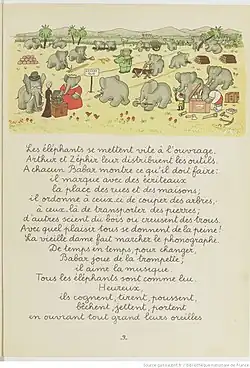 Les éléphants se mettent vite à l'ouvrage.
Arthur et Zéphir leur distribuent les outils.
A chacun Babar montre ce qu'il doit faire:
il marque avec des écriteaux
la place des rues et des maisons;
il ordonne à ceux-ci de couper des arbres,
à ceux-là de transporter des pierres;
d'autres scient du bois ou creusent des trous.
Avec quel plaisir tous se donnent de la peine!
La vieille dame fait marcher le phonographe.
De temps en temps, pour changer,
Babar joue de la trompette;
il aime la musique.
Tous les éléphants sont comme lui.
Heureux,
ils cognent, tirent, poussent,
bêchent, jettent, portent
en ouvrant tout grand leurs oreilles
Source gallica.bnf.fr / Bibliothèque nationale de France